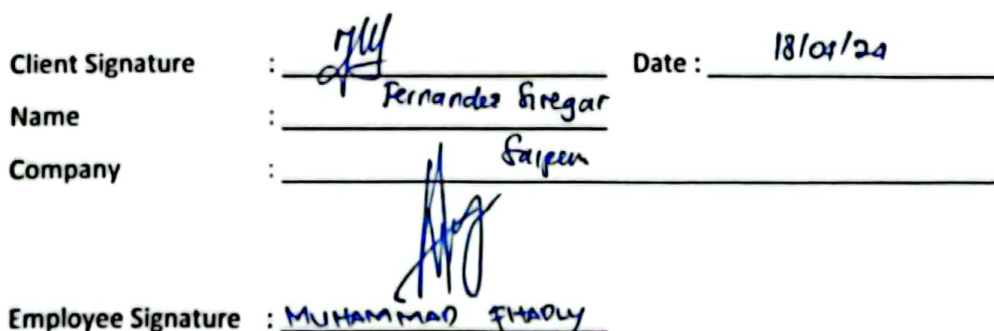 Client Signature : Date : 18/01/24
Name : Fernandez Siregar
Company : Saipem
Employee Signature : MUHAMMAD FHADLY